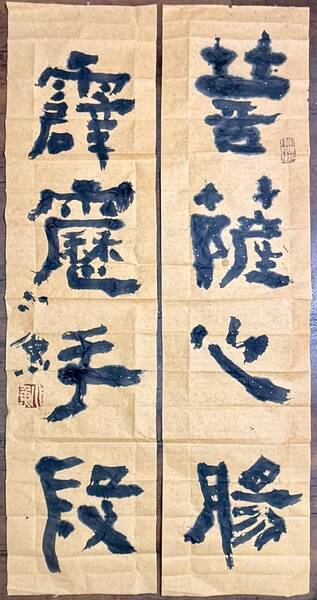 菩薩心腸
霹靂手段